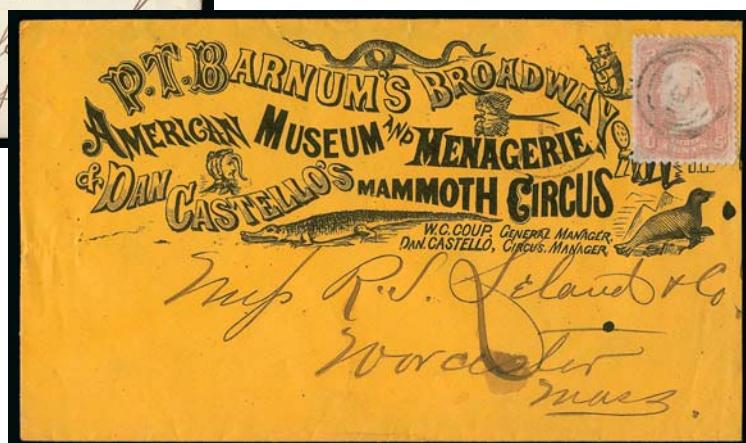 P.T. BARNUM'S BROADWAY
AMERICAN MUSEUM AND MENAGERIE
& DAN CASTELLO'S MAMMOTH CIRCUS
W.C. COUP, GENERAL MANAGER,
DAN. CASTELLO, CIRCUS. MANAGER,
R.S. Leland & Co
Worcester
Mass.